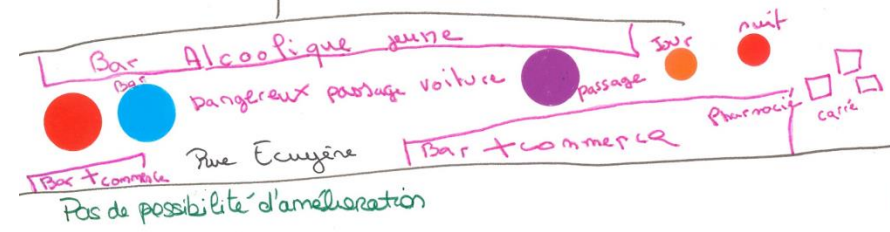 Bar Alcoolique jeune
Jour
nuit
Bar
Dangereux passage voiture
passage
Pharmacie
carré
Bar + commerce
Rue Ecuyère
Bar + commerce
Pas de possibilité d'amélioration